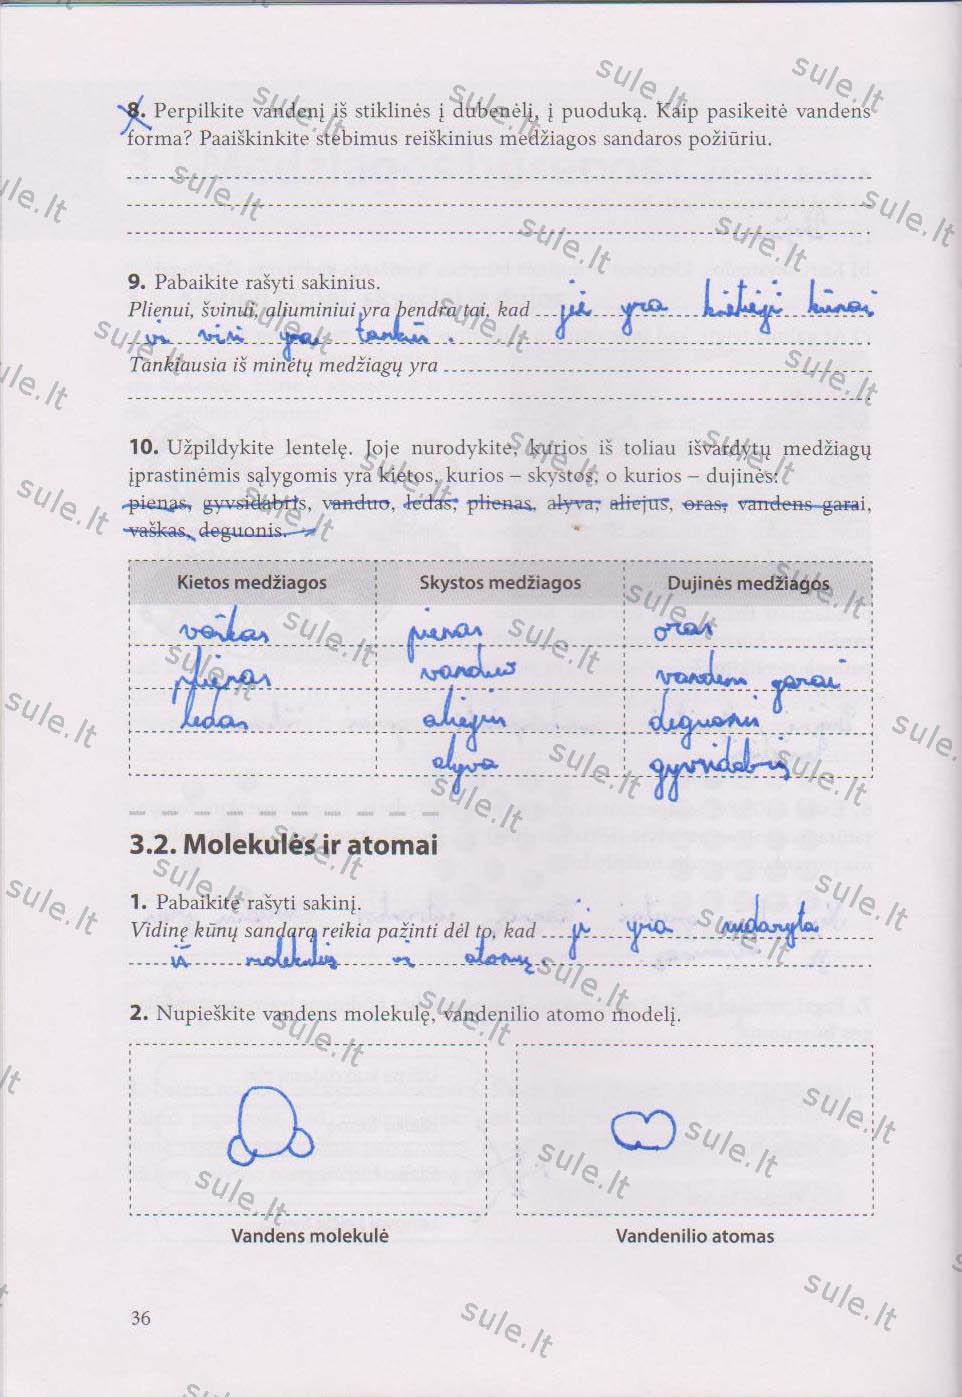 8. Perpilkite vandenį iš stiklinės į dubenėlį, į puoduką. Kaip pasikeitė vandens
forma? Paaiškinkite stebimus reiškinius medžiagos sandaros požiūriu.
9. Pabaikite rašyti sakinius.
Plienui, švinui, aliuminiui yra bendra tai, kad jie yra kietieji kūnai
ir visi yra tankūs .
Tankiausia iš minėtų medžiagų yra
10. Užpildykite lentelę. Joje nurodykite, kurios iš toliau išvardytų medžiagų
įprastinėmis sąlygomis yra kietos, kurios – skystos, o kurios – dujinės:
pienas, gyvsidabris, vanduo, ledas, plienas, alyva, aliejus, oras, vandens garai,
vaškas, deguonis.
Kietos medžiagos Skystos medžiagos Dujinės medžiagos
vaškas pienas oras
plienas vanduo vandens garai
ledas aliejus deguonis
alyva gyvsidabris
3.2. Molekulės ir atomai
1. Pabaikite rašyti sakinį.
Vidinę kūnų sandarą reikia pažinti dėl to, kad ji yra sudaryta
iš molekulių ir atomų.
2. Nupieškite vandens molekulę, vandenilio atomo modelį.
Vandens molekulė Vandenilio atomas
36
sule.lt